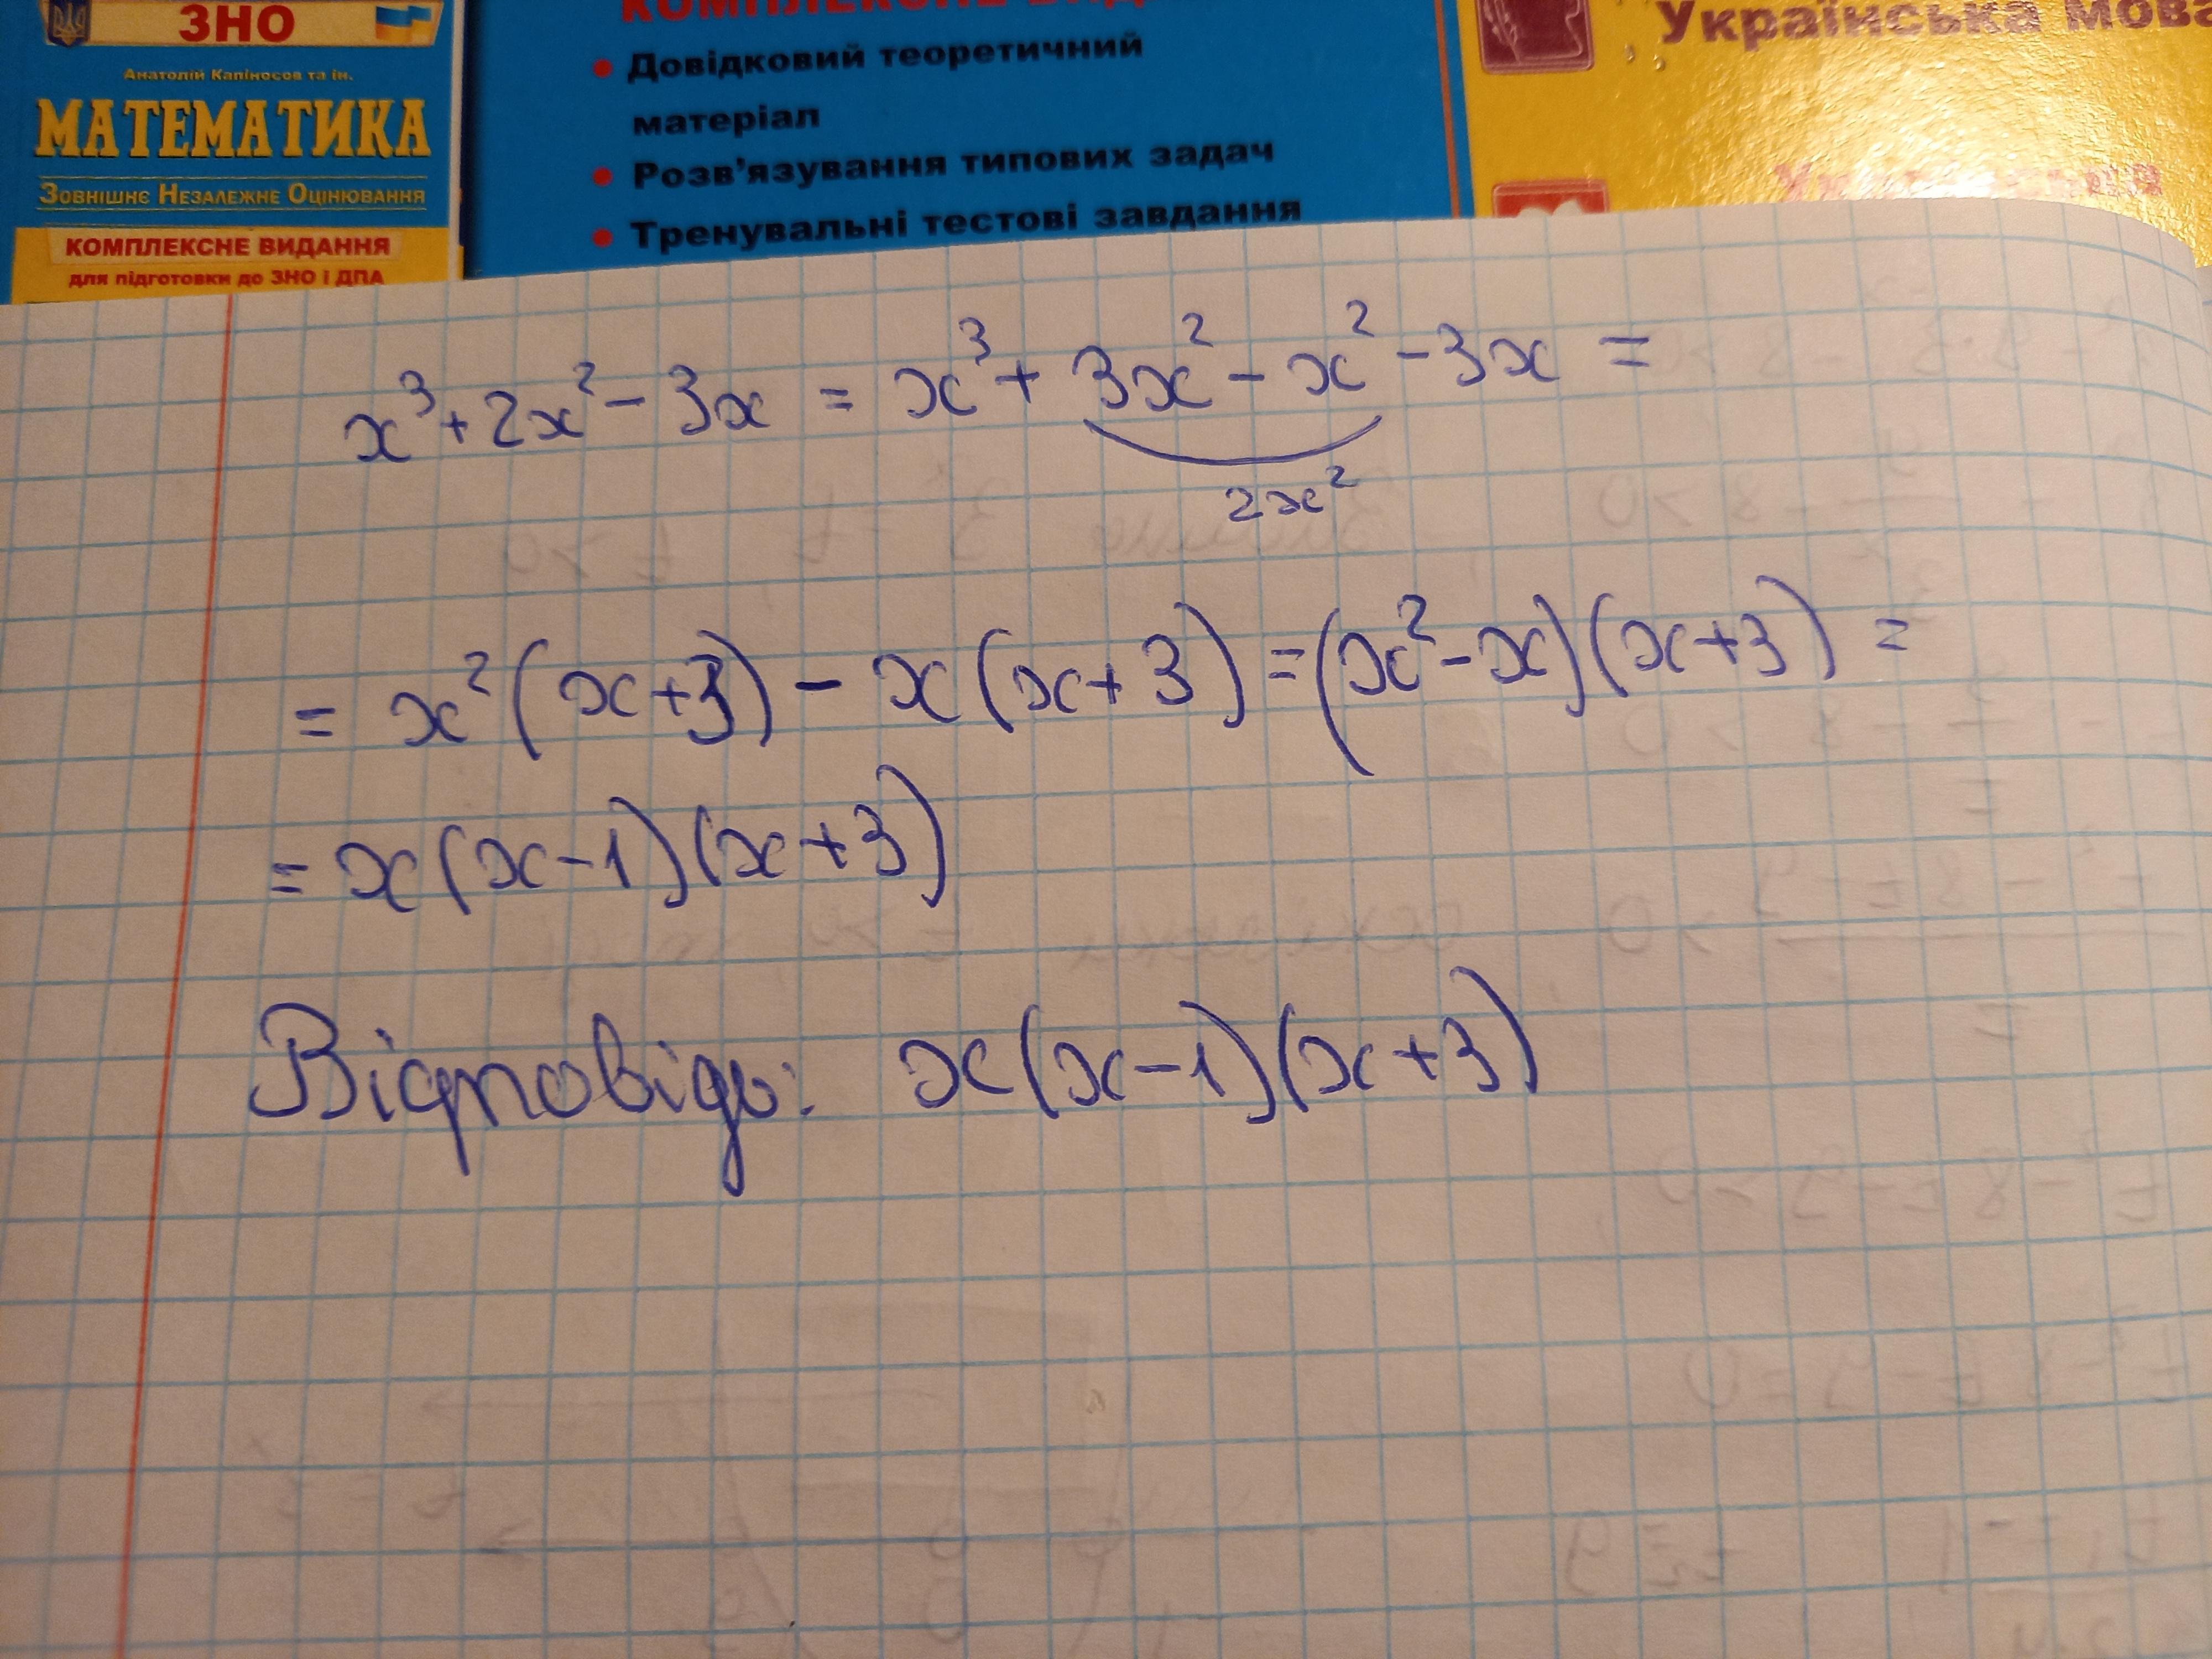 ЗНО
Анатолій Капіносов та ін.
МАТЕМАТИКА
ЗОВНІШНЄ НЕЗАЛЕЖНЕ ОЦІНЮВАННЯ
КОМПЛЕКСНЕ ВИДАННЯ
для підготовки до ЗНО і ДПА
• Довідковий теоретичний
матеріал
• Розв'язування типових задач
• Тренувальні тестові завдання
Українська мова
x³+2x²-3x = x³+3x²-x²-3x =
2x²
= x²(x+3)-x(x+3)=(x²-x)(x+3)=
= x(x-1)(x+3)
Відповідь: x(x-1)(x+3)